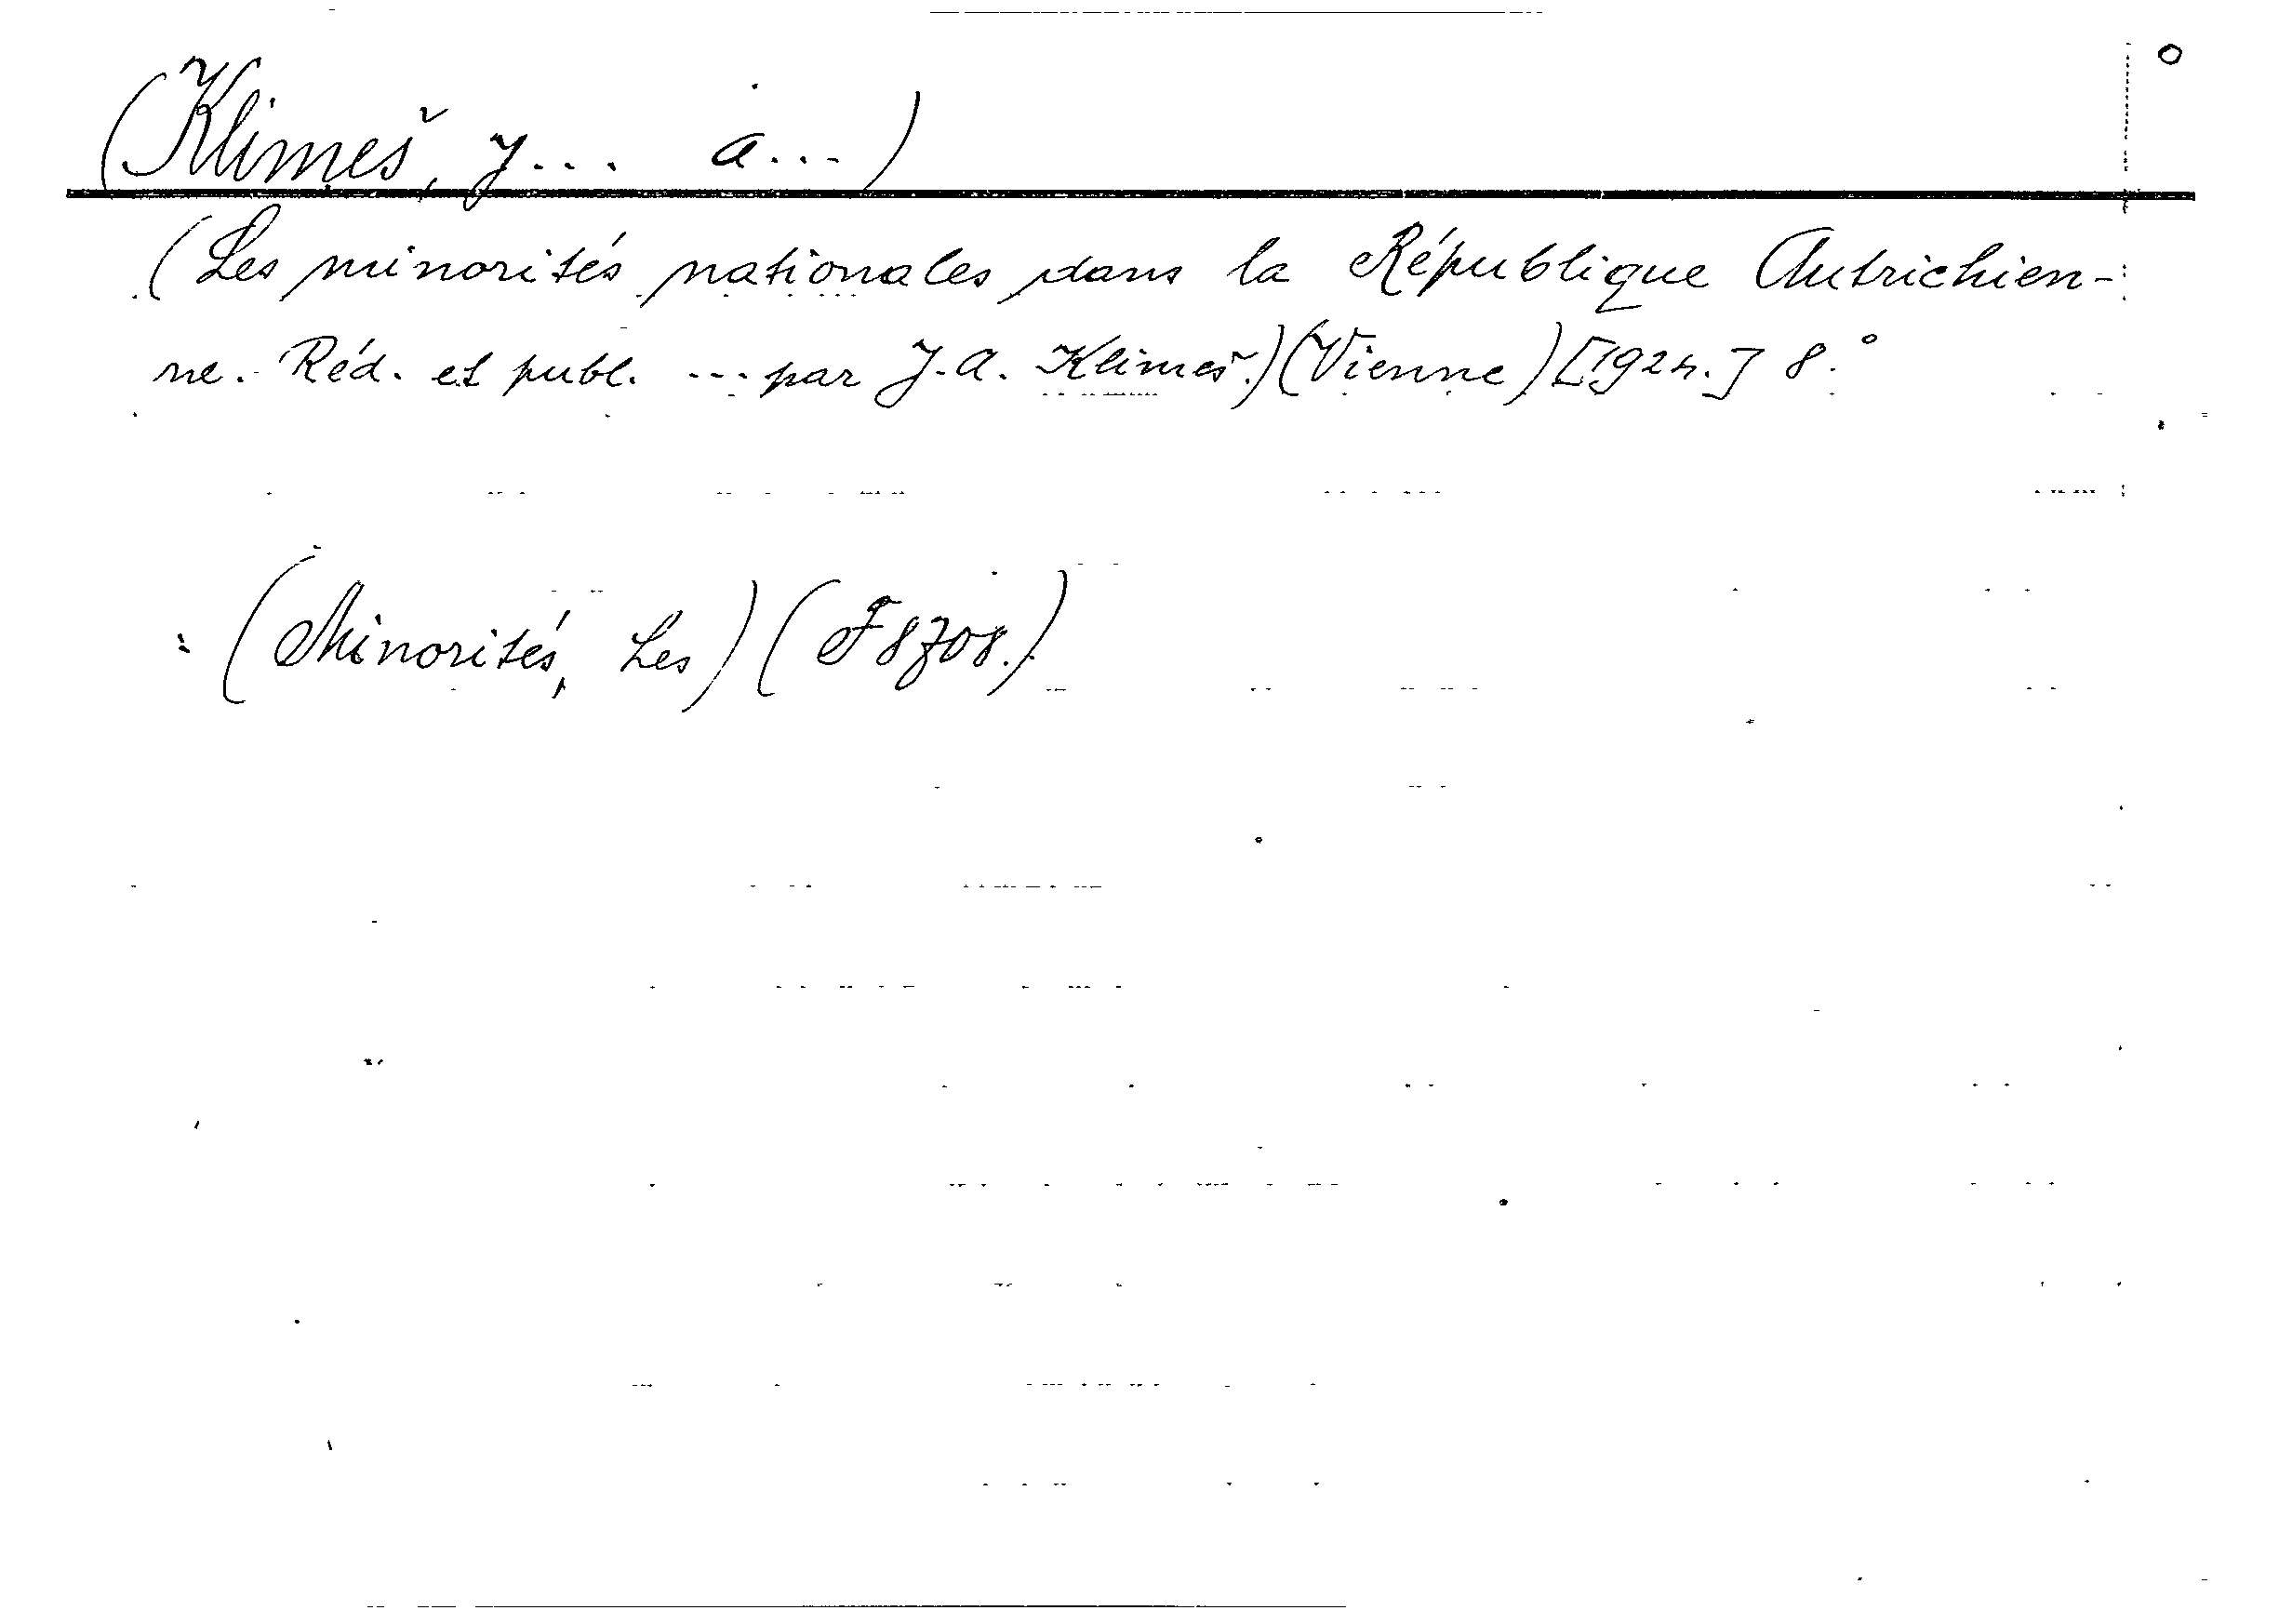 (Klimeš, J... A...)
(Les minorités nationales dans la République Autrichien-
ne. Réd. et publ. ... par J. A. Klimeš.) (Vienne) [1924.] 8.°
(Minorités, Les) (F 8708.)